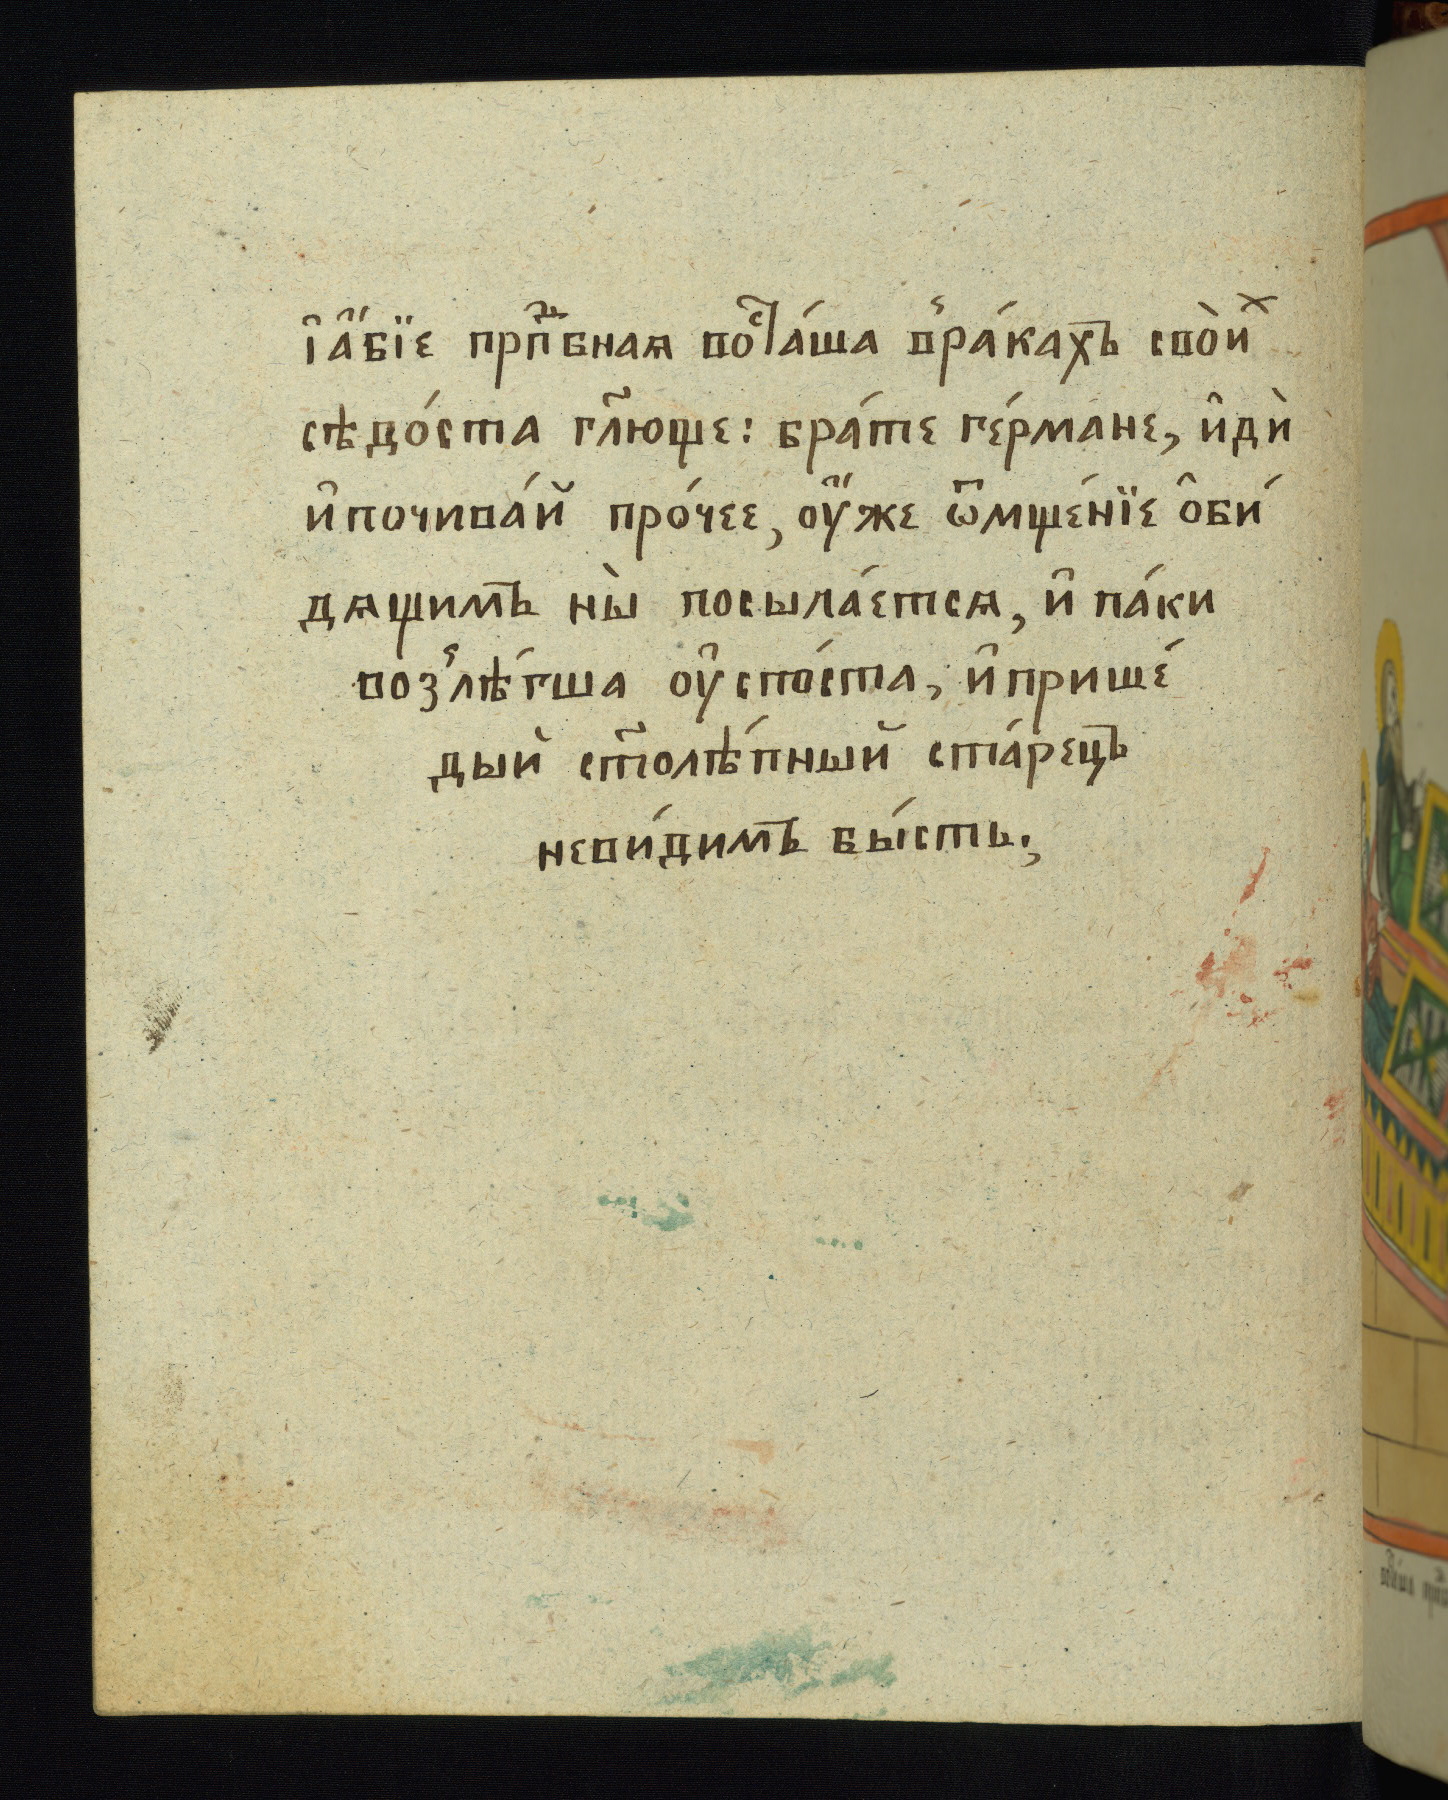 і҆а҆́бїе прпⷣбнаѧ воⷭ҇та́ша в̾ра́кахъ свои̑ⷯ
сѣдо́ста гл҃юще: бра́те ге́рмане, и҆дѝ
и҆почива́й про́чее, ᲂу҆́же ѿмще́нїе ѻ҆би́
дѧщимъ ны̀ посыла́етсѧ, и҆ па́ки
воз̾лѣ́гша ᲂу҆спо́ста, и҆прише́
дый ст҃олѣ́пный ста́рецъ
неви́димъ бы́сть;